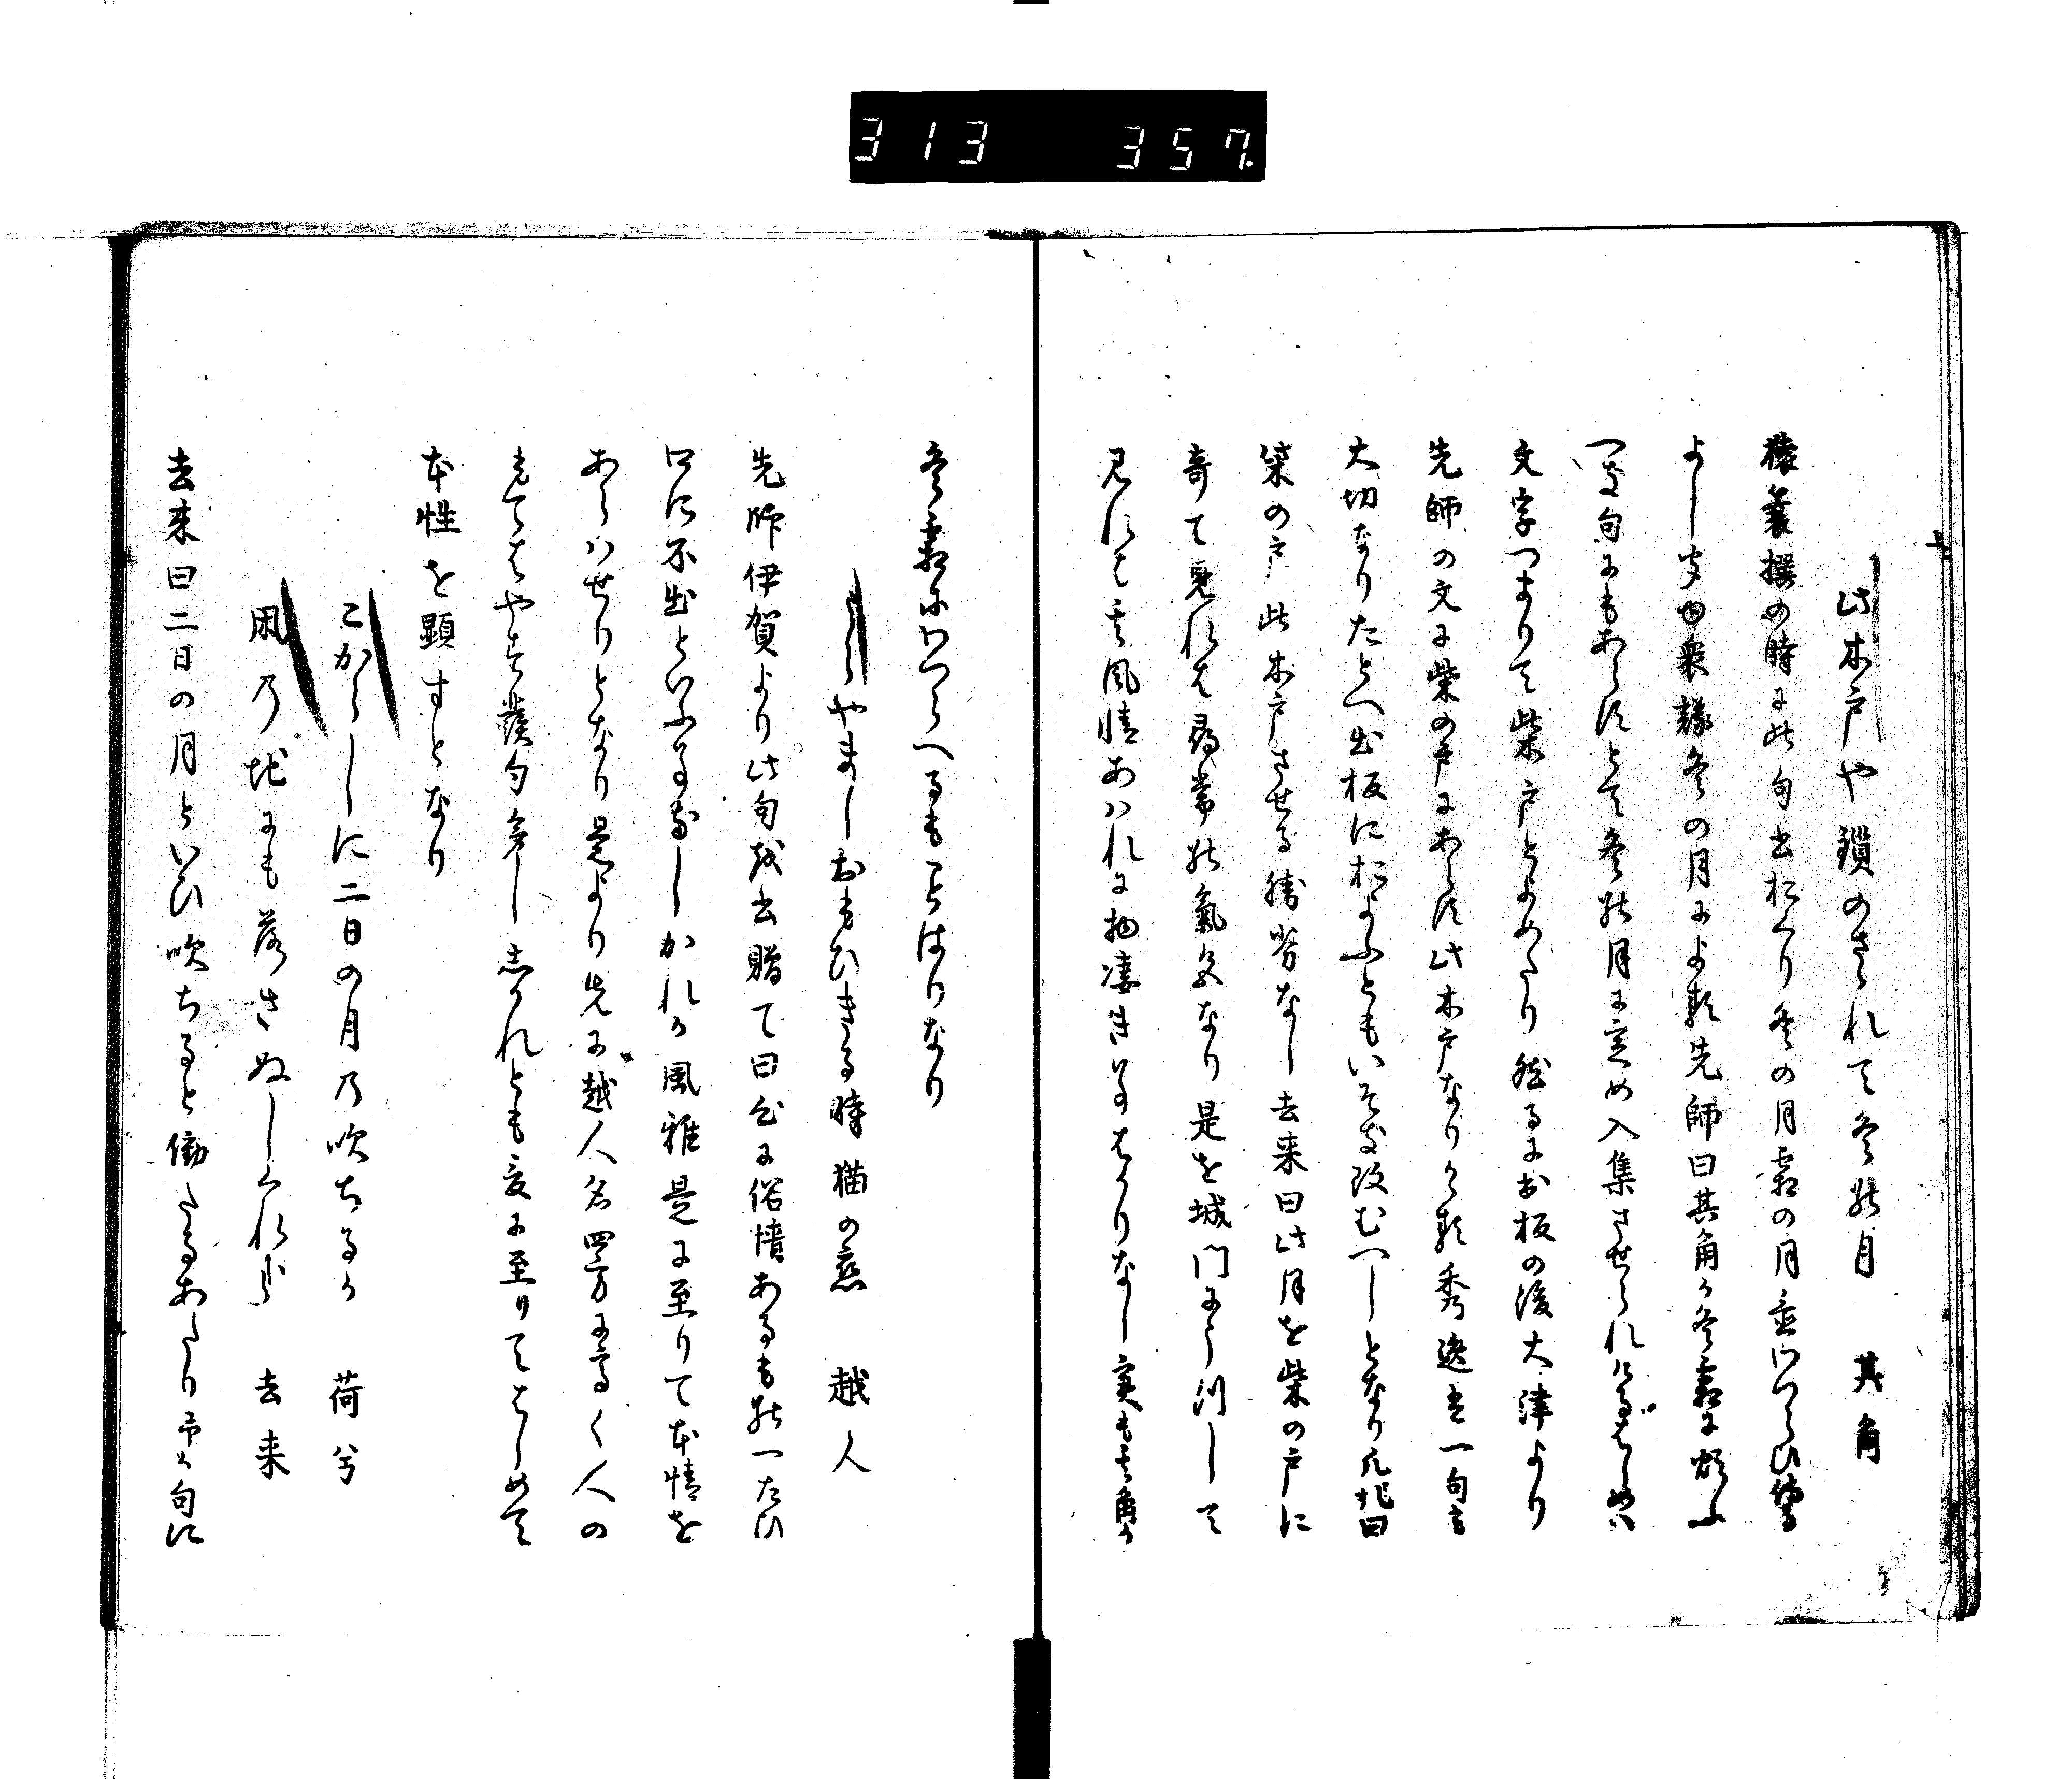 313 357
此木戸や鎖のさゝれて冬の月 其角
猿簑撰の時に此句書おくり冬の月霜の月置わつらひ侍る
よしきこゆ衆議冬の月による先師曰其角か冬霜に煩ふ
へき句にもあらすとて冬の月に定め入集させられけるはしめは
文字つまりて柴戸とよめたり然るに出板の後大津より
先師の文に柴の戸にあらす此木戸なりかゝる秀逸は一句も
大切なりたとへ出板におよふともいそき改むへしとなり凡兆曰
柴の戸此木戸させる勝劣なし去来曰此月を柴の戸に
寄て見れは尋常の氣色なり是を城門にうつして
見れは其風情あはれに物凄きいふはかりなし実も其角か
冬霜にわつらへるもことはりなり
うらやましおもひきる時猫の恋 越人
先師伊賀より此句を書贈て曰心に俗情あるもの一たひ
口に不出といふ事なしかれか風雅是に至りて本情を
あらはせりとなり是より先に越人名四方に高く人の
もてはやす發句多ししかれとも爰に至りてはしめて
本性を顕すとなり
こからしに二日の月乃吹ちるか 荷兮
凩乃地にも落さぬしくれ哉 去来
去来曰二日の月といひ吹ちると働たるあたり予か句に